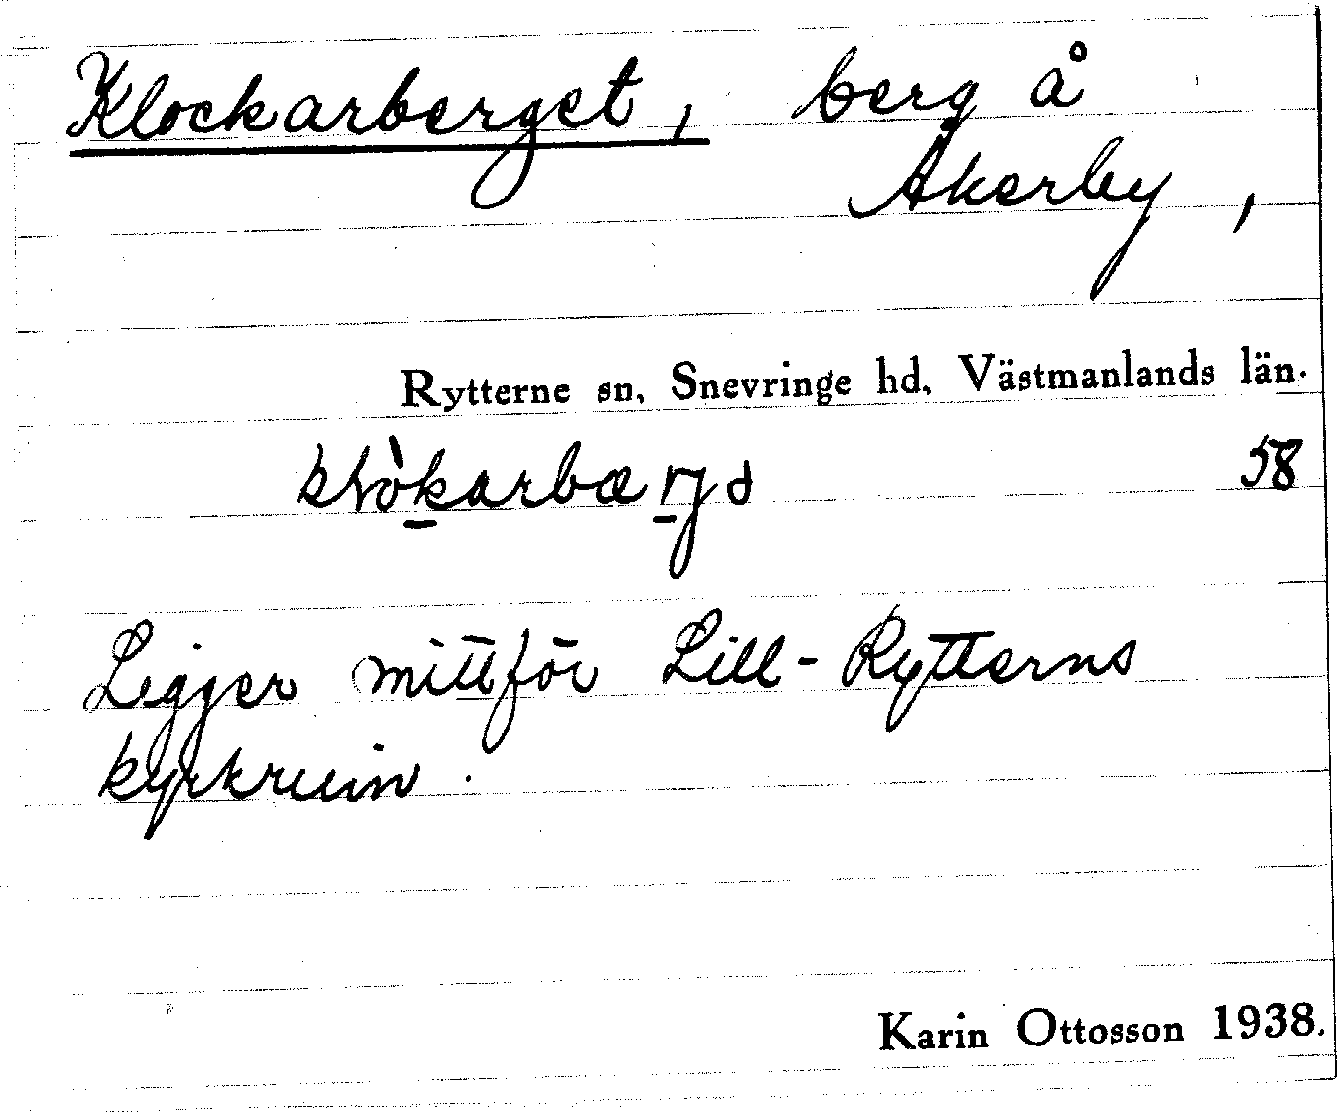 Klockarberget, berg å
Åkerby,
Rytterne sn, Snevringe hd, Västmanlands län.
58
Ligger mittför Lill-Rytterns
kyrkruin.
Karin Ottosson 1938.